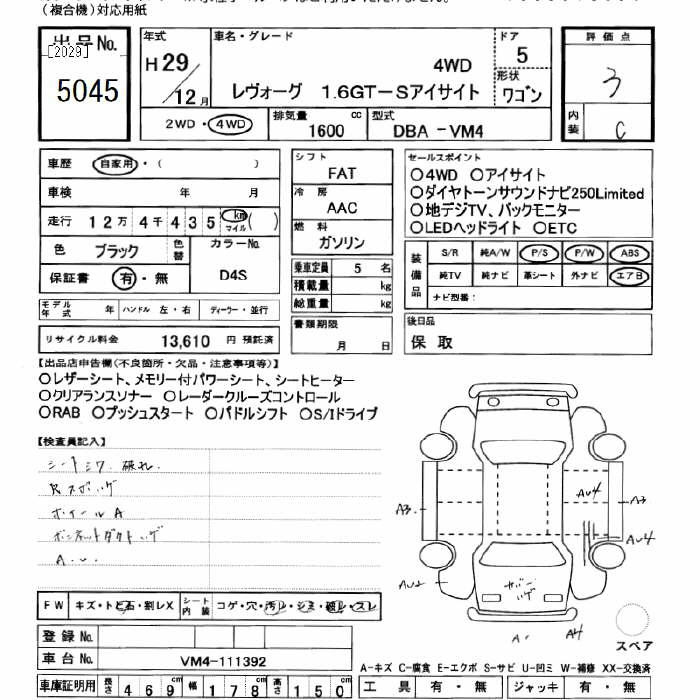 (複合機)対応用紙
出品No.
[2029]
5045
年式
H 29/12月
車名・グレード
4WD
レヴォーグ 1.6GT-Sアイサイト
ドア
5
形状
ワゴン
評価点
3
内装
C
2WD・4WD
排気量
1600 cc
型式
DBA-VM4
車歴 自家用・( )
車検 年 月
走行 12万4千435 km マイル ( )
色 ブラック 色替
カラーNo. D4S
保証書 有・無
モデル年式 年 ハンドル 左・右 ディーラー・並行
リサイクル料金 13,610 円 預託済
シフト
FAT
冷房
AAC
燃料
ガソリン
乗車定員 5 名
積載量 kg
総重量 kg
書類期限
月 日
セールスポイント
○4WD ○アイサイト
○ダイヤトーンサウンドナビ250Limited
○地デジTV、バックモニター
○LEDヘッドライト ○ETC
装備品
S/R 純A/W P/S P/W ABS
純TV 純ナビ 革シート 外ナビ エアB
ナビ型番:
後日品
保 取
【出品店申告欄(不良箇所・欠品・注意事項等)】
○レザーシート、メモリー付パワーシート、シートヒーター
○クリアランスソナー ○レーダークルーズコントロール
○RAB ○プッシュスタート ○パドルシフト ○S/Iドライブ
【検査員記入】
シートシワ.破れ.
ホイールA
ボンネットダクトハゲ
A.U.
A3
AU2
AU4
A3
AU4
A4
FW キズ・トビ石・割レX
シート内装 コゲ・穴・汚レ・シミ・破レ・スレ
登録No.
車台No. VM4-111392
スペア
A-キズ C-腐食 E-エクボ S-サビ U-凹ミ W-補修 XX-交換済
車庫証明用 長さ 469cm 幅 178cm 高さ 150cm
工具 有・無 ジャッキ 有・無